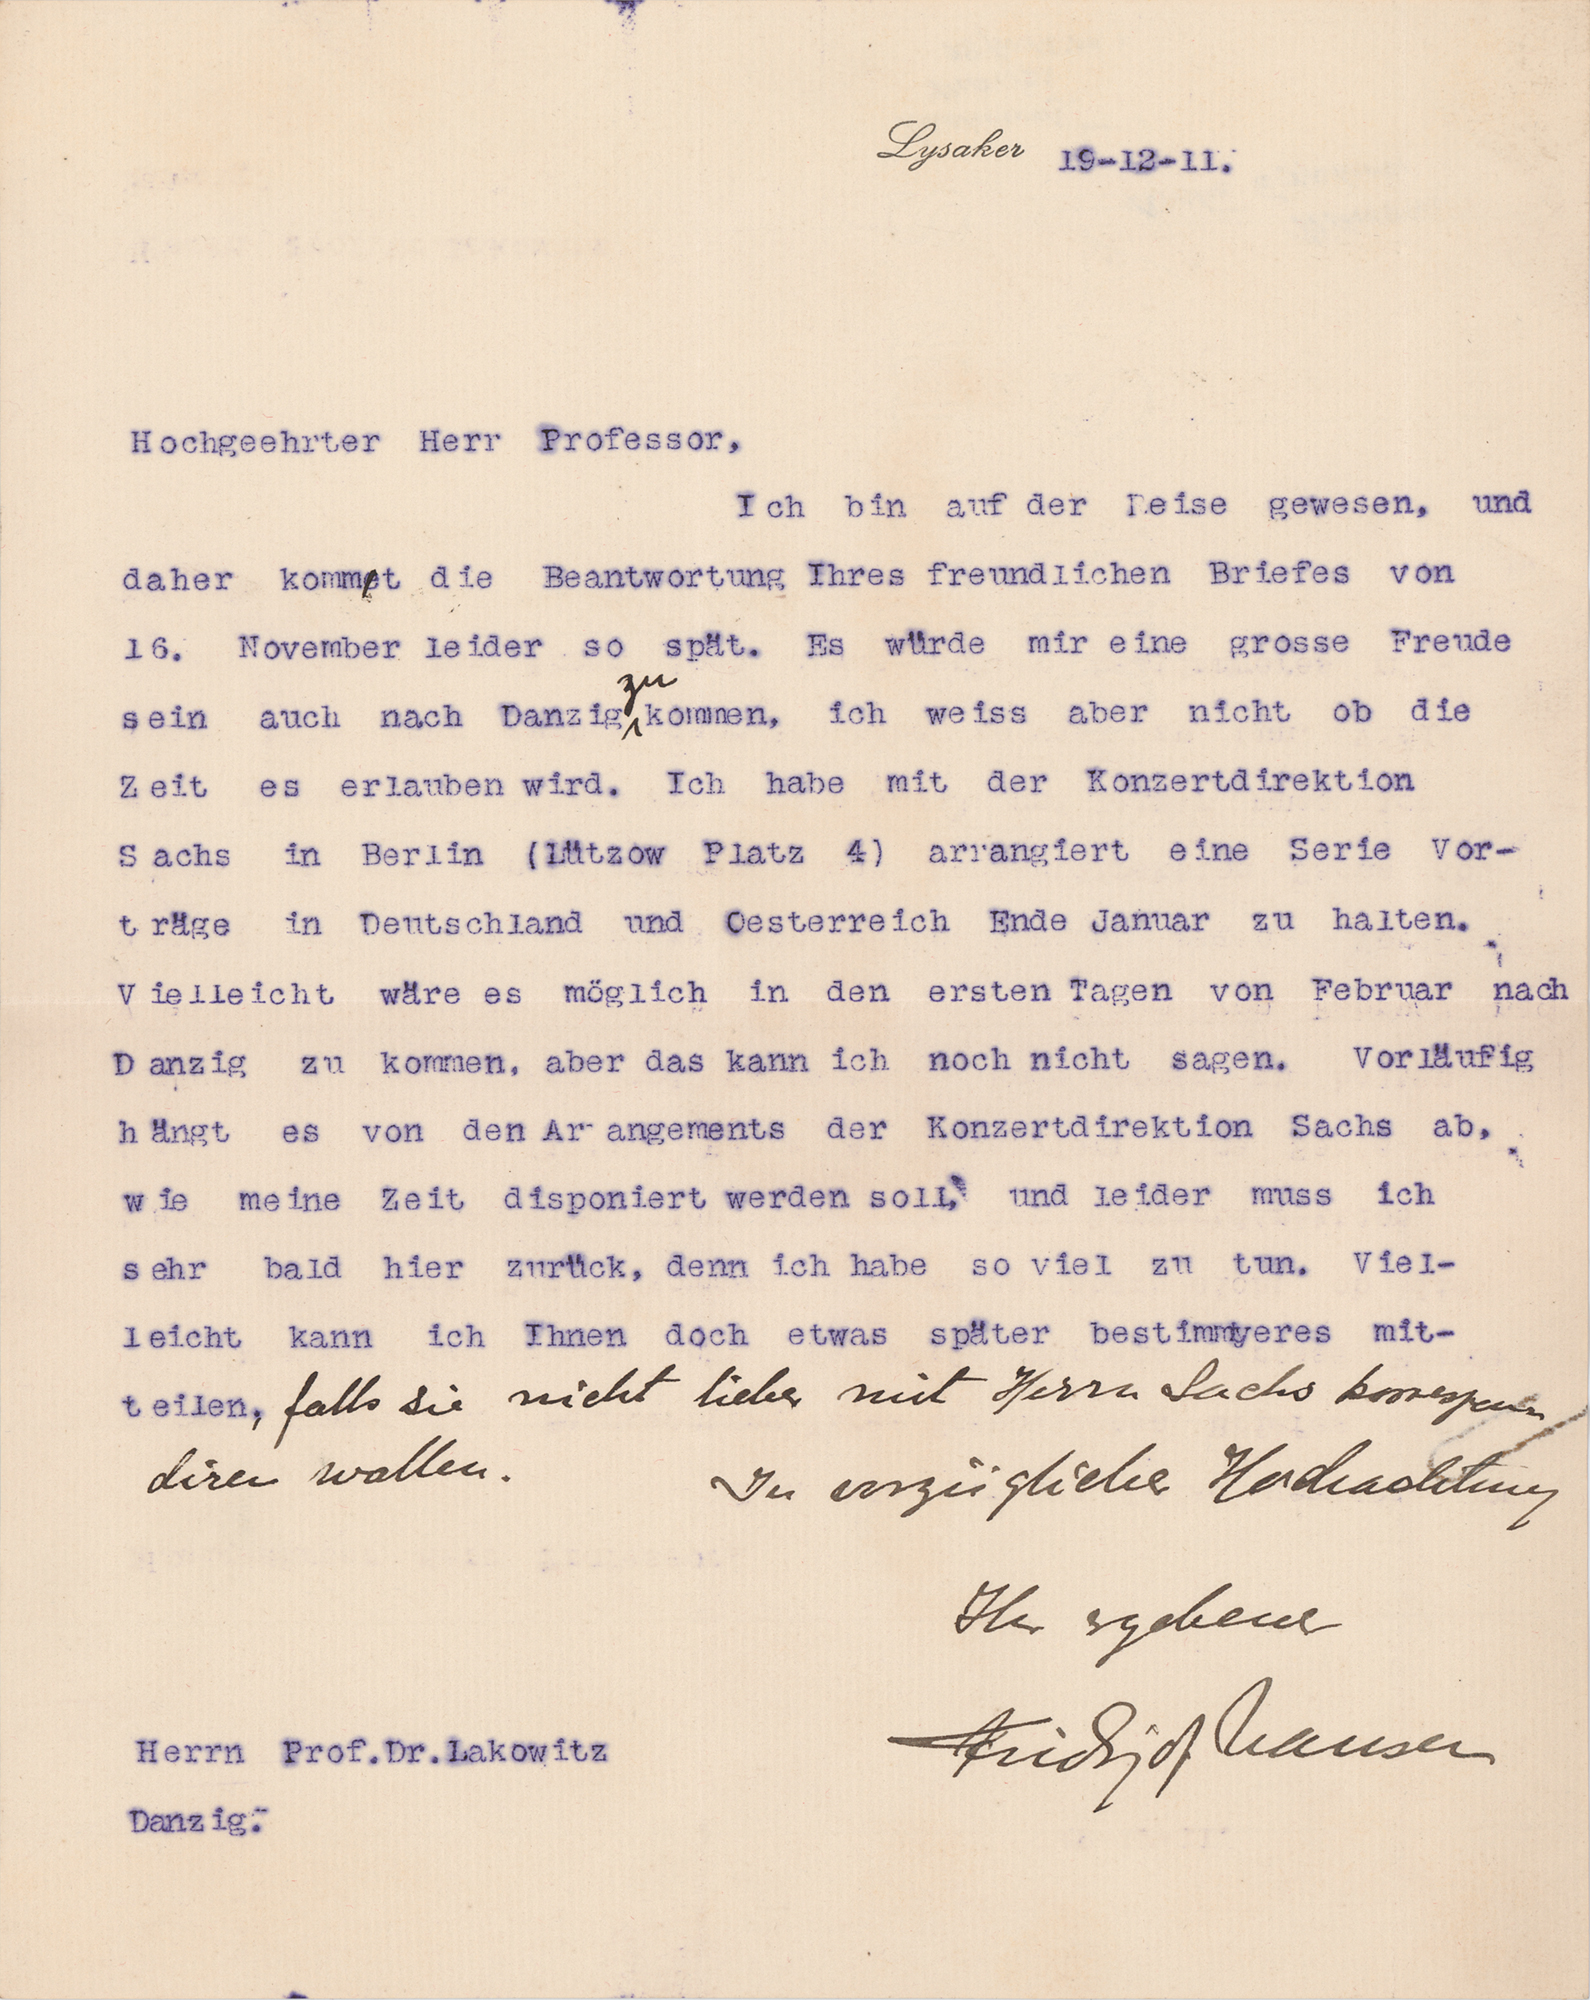 Lysaker 19-12-11.
Hochgeehrter Herr Professor,
Ich bin auf der Reise gewesen, und
daher kommt die Beantwortung Ihres freundlichen Briefes von
16. November leider so spät. Es würde mir eine grosse Freude
sein auch nach Danzig zu kommen, ich weiss aber nicht ob die
Zeit es erlauben wird. Ich habe mit der Konzertdirektion
Sachs in Berlin (Lützow Platz 4) arrangiert eine Serie Vor-
träge in Deutschland und Oesterreich Ende Januar zu halten.
Vielleicht wäre es möglich in den ersten Tagen von Februar nach
Danzig zu kommen, aber das kann ich noch nicht sagen. Vorläufig
hängt es von den Ar angements der Konzertdirektion Sachs ab,
wie meine Zeit disponiert werden soll, und leider muss ich
sehr bald hier zurück, denn ich habe so viel zu tun. Viel-
leicht kann ich Ihnen doch etwas später bestimmyeres mit-
teilen, falls sie nicht lieber mit Herrn Sachs korrespon
diren wollen. In vorzüglicher Hochachtung
Ihr ergebener
Fridtjof Nansen
Herrn Prof.Dr.Lakowitz
Danzig.